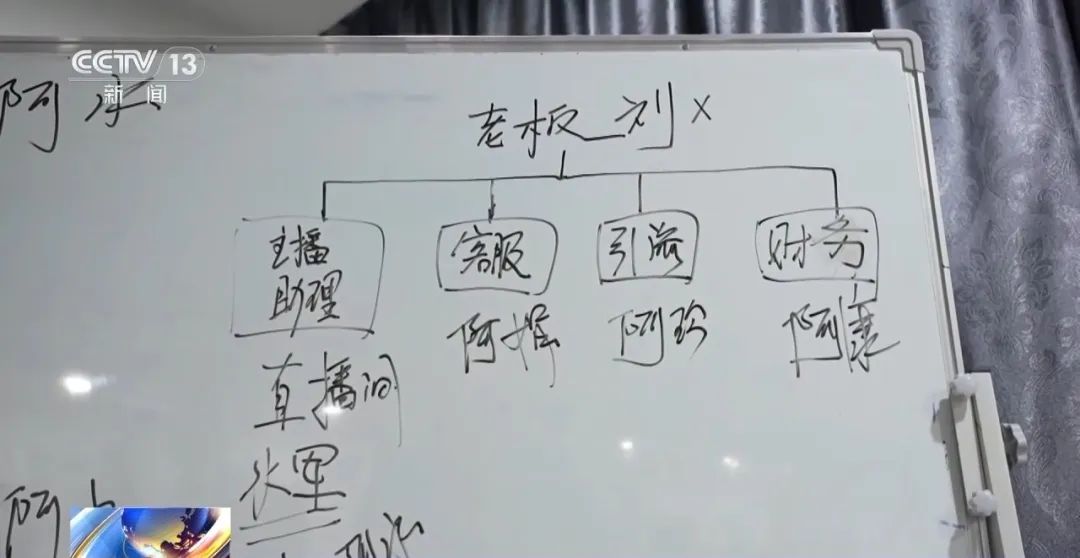 CCTV 13
新闻
阿水
老板 刘X
主播
助理
客服
引流
财务
阿婷
阿珍
阿康
直播间
水军
阿